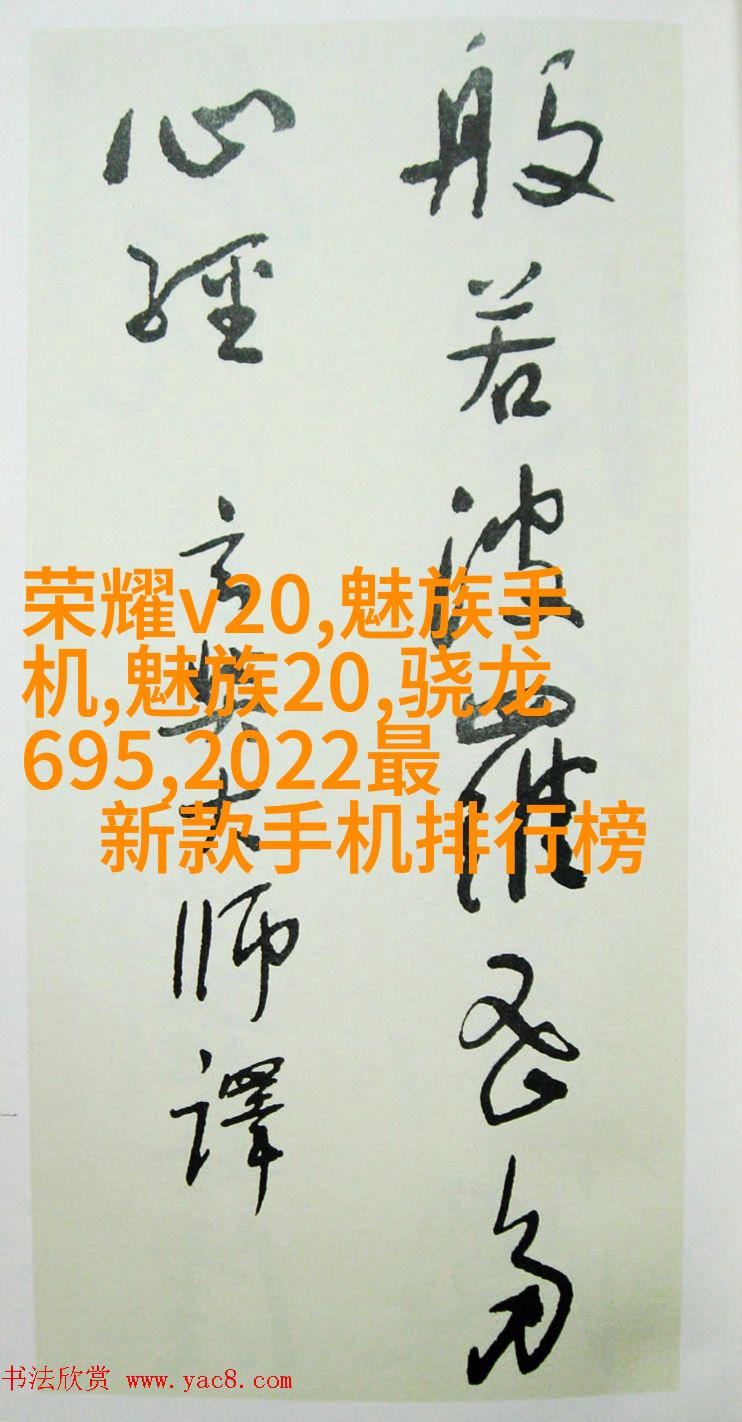 般若波羅密多
心經 玄奘大師譯
荣耀v20,魅族手
机,魅族20,骁龙
695,2022最
新款手机排行榜
书法欣赏 www.yac8.com